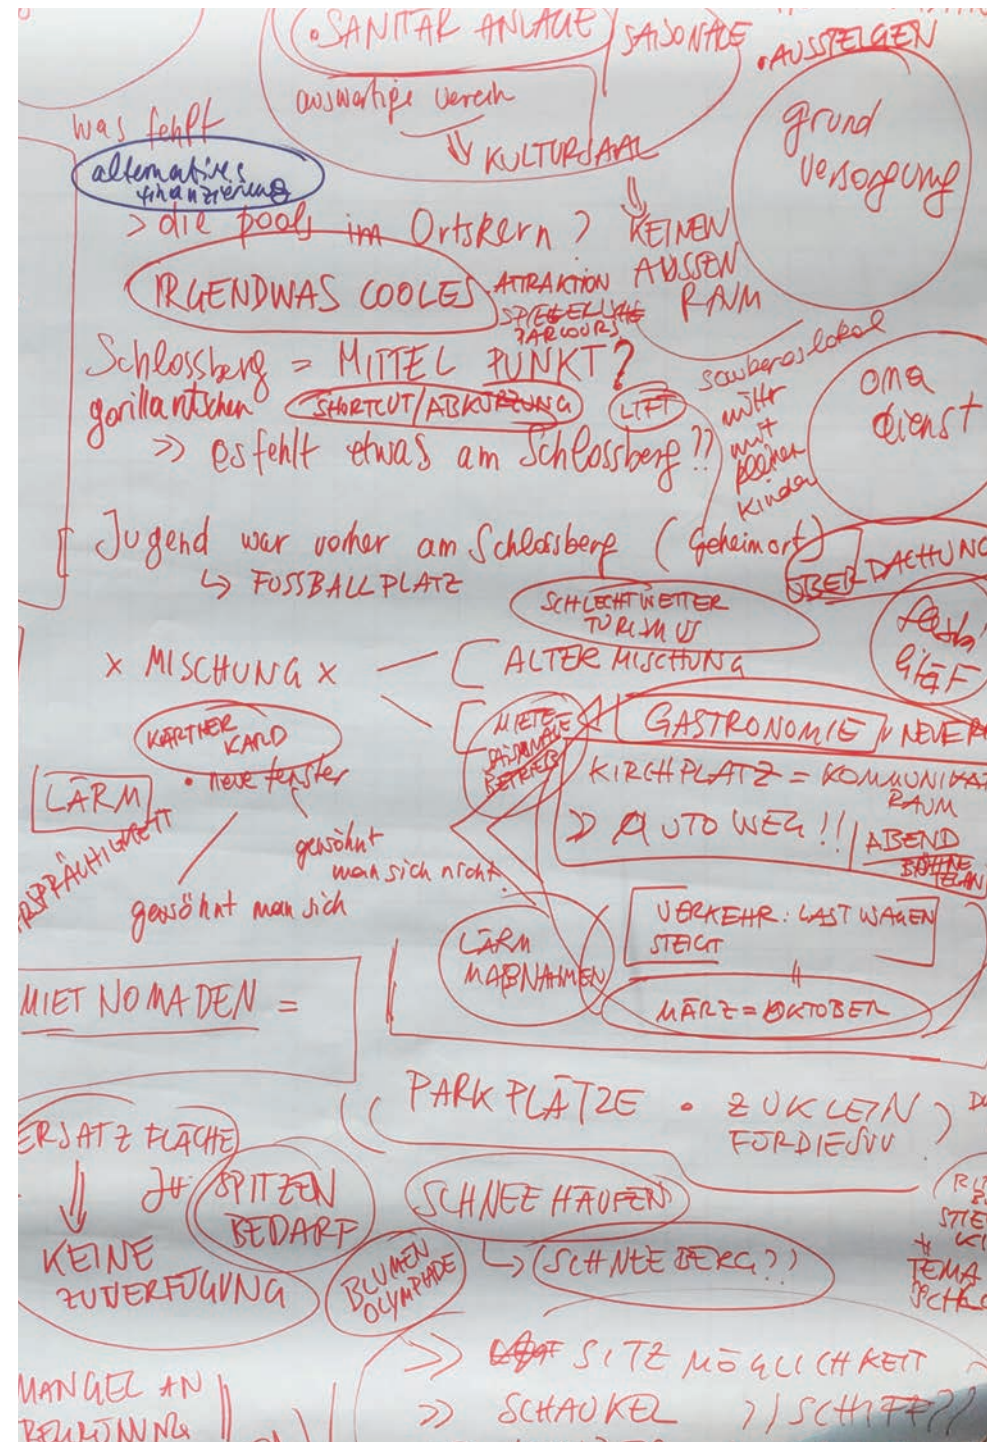 • SANITÄR ANLAGE
SAISONALE
• AUSSTEIGEN
auswärtige verein
KULTURSAAL
grund
versorgung
was fehlt
alternatives
finanzierung
> die pools im Ortskern ?
KEINEN
AUSSEN
RAUM
IRGENDWAS COOLES
ATTRAKTION
PARCOURS
Schlossberg = MITTEL PUNKT?
gorilla rutschen
SHORTCUT/ABKÜRZUNG
LIFT
sauberes lokal
mit
kleinen
kinder
oma
dienst
>> es fehlt etwas am Schlossberg??
Jugend war vorher am Schlossberg (Geheimort)
↳ FUSSBALLPLATZ
ÜBERDACHUNG
SCHLECHTWETTER
TURISMUS
x MISCHUNG x
ALTER MISCHUNG
KÄRTNER
CARD
• neue fenster
MIETE
SAISONALE
BETRIEB
GASTRONOMIE
KIRCHPLATZ = KOMMUNIKA
RAUM
>> AUTO WEG !!
ABEND
BÜHNE
LÄRM
gewöhnt
man sich nicht
gewöhnt man sich
LÄRM
MAßNAHMEN
VERKEHR: LAST WAGEN
STEIGT
MÄRZ = OKTOBER
MIET NOMADEN =
PARK PLÄTZE • ZU KLEIN
FÜR DIE SUV
ERSATZ FLÄCHE
SPITZEN
BEDARF
KEINE
ZUVERFÜGUNG
SCHNEE HAUFEN
↳ (SCHNEE BERG??)
BLUMEN
OLYMPIADE
TEMA
>> SITZ MÖGLICHKEIT
>> SCHAUKEL
SCHIFF??
MANGEL AN